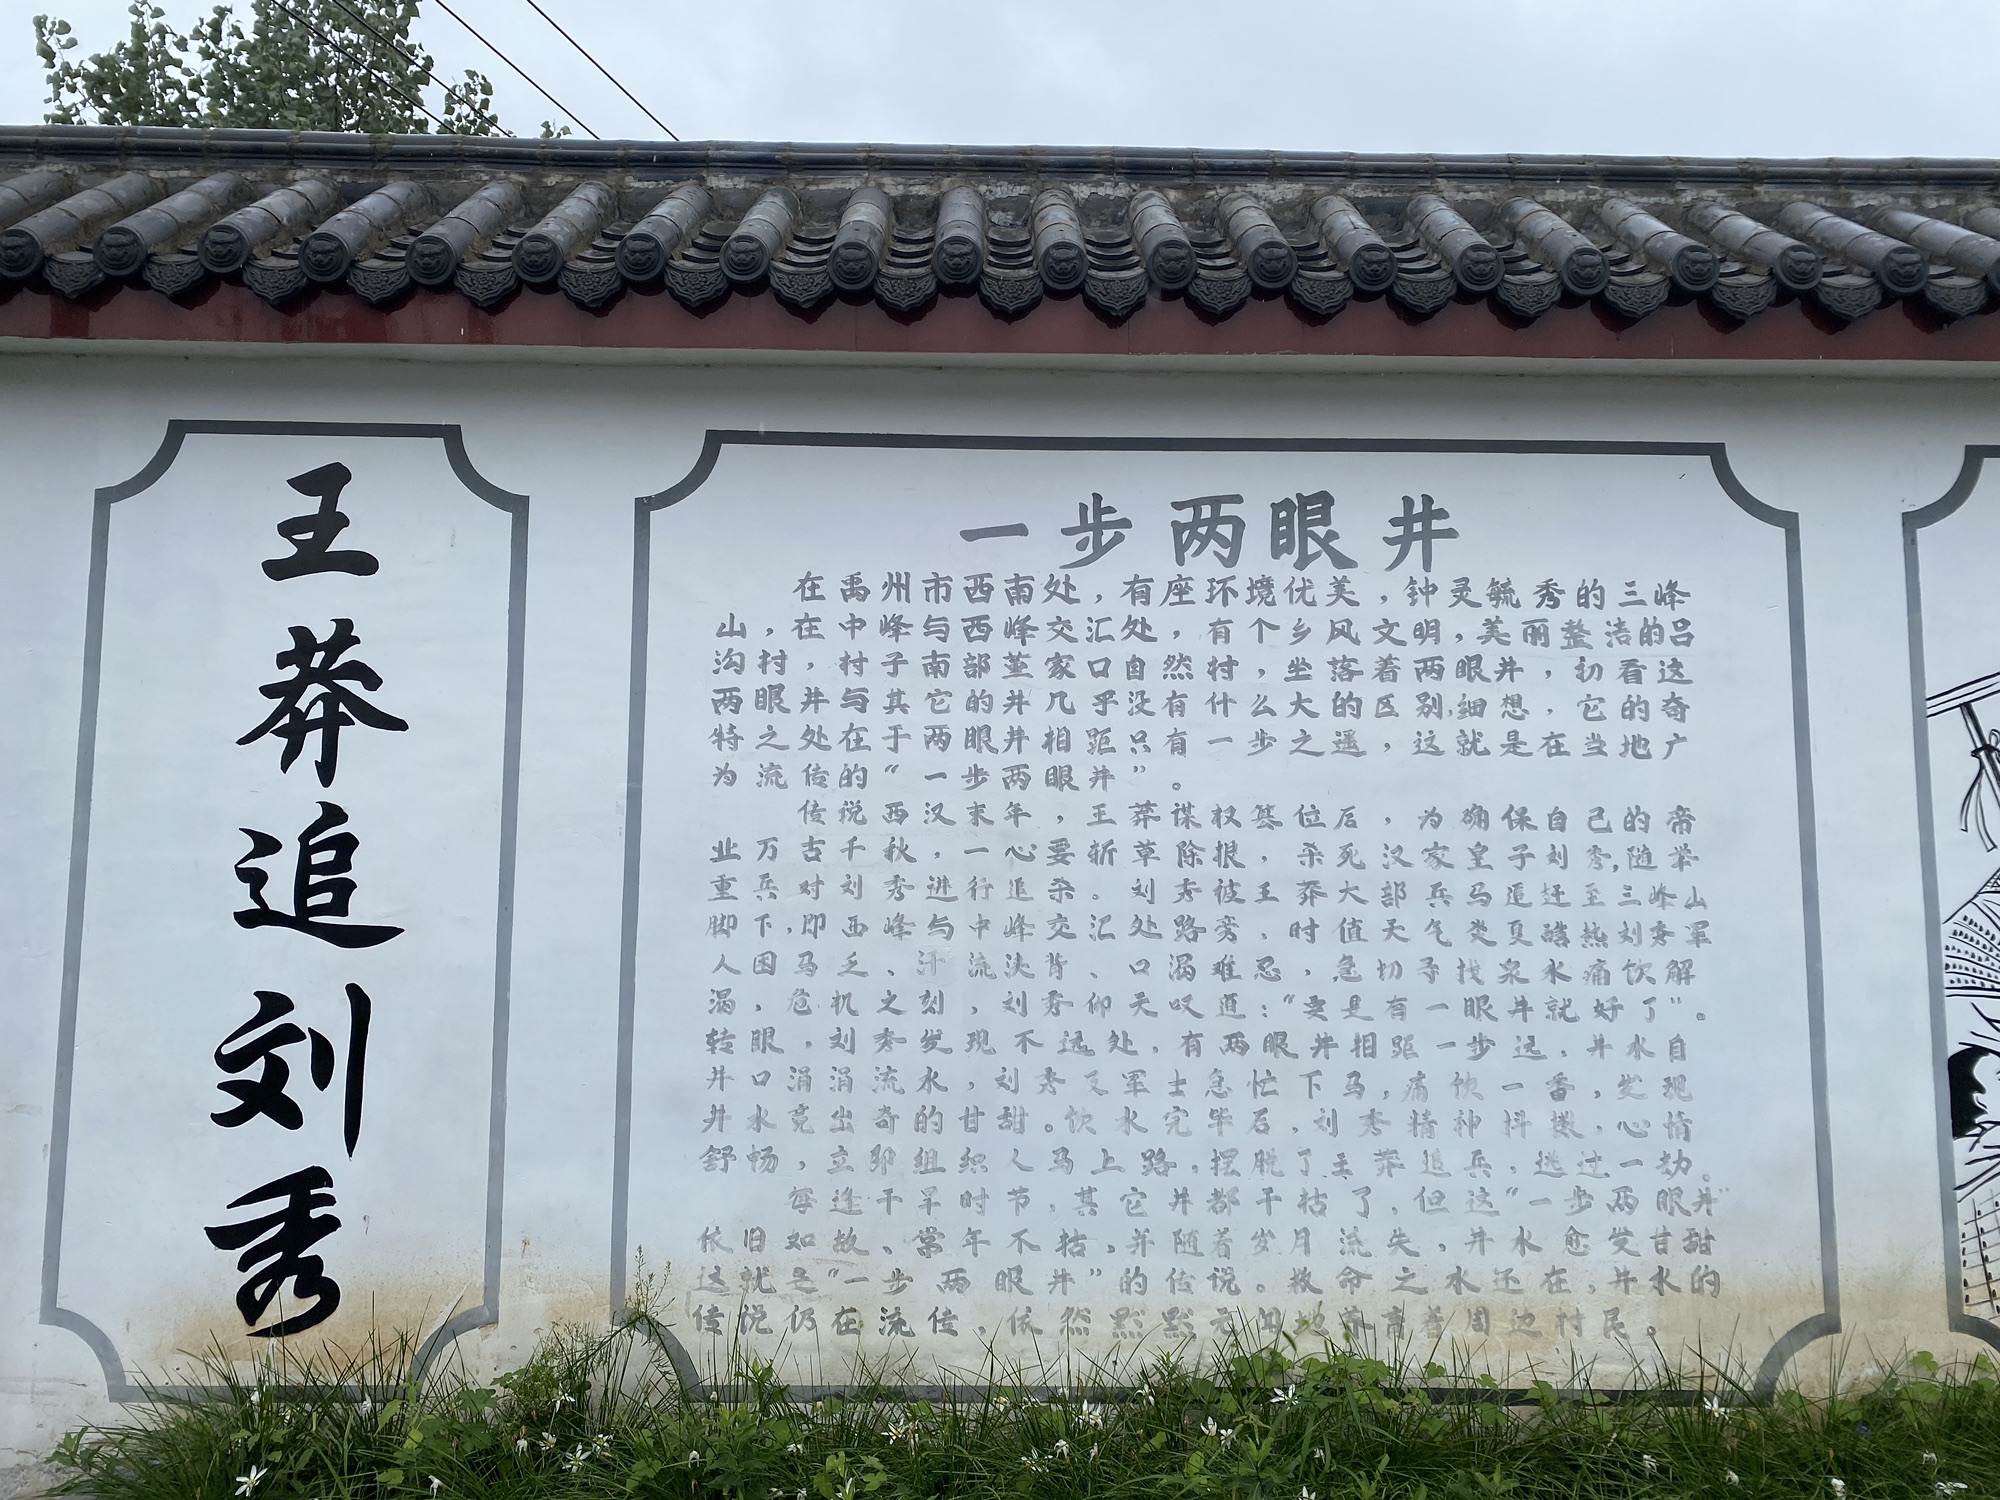 王莽追刘秀
一步两眼井
在禹州市西南处，有座环境优美，钟灵毓秀的三峰
山，在中峰与西峰交汇处，有个乡风文明，美丽整洁的吕
沟村，村子南部董家口自然村，坐落着两眼井，初看这
两眼井与其它的井几乎没有什么大的区别，细想，它的奇
特之处在于两眼井相距只有一步之遥，这就是在当地广
为流传的“一步两眼井”。
传说西汉末年，王莽谋权篡位后，为确保自己的帝
业万古千秋，一心要斩草除根，杀死汉家皇子刘秀，随举
重兵对刘秀进行追杀。刘秀被王莽大部兵马追赶至三峰山
脚下，即西峰与中峰交汇处路旁，时值天气炎夏酷热刘秀军
人困马乏、汗流浃背、口渴难忍，急切寻找泉水痛饮解
渴，危机之刻，刘秀仰天叹道：“要是有一眼井就好了”。
转眼，刘秀发现不远处，有两眼井相距一步远，井水自
井口涓涓流水，刘秀及军士急忙下马，痛饮一番，发现
井水竟出奇的甘甜。饮水完毕后，刘秀精神抖擞，心情
舒畅，立即组织人马上路，摆脱了王莽追兵，逃过一劫。
每逢干旱时节，其它井都干枯了，但这“一步两眼井”
依旧如故、常年不枯，并随着岁月流失，井水愈发甘甜
这就是“一步两眼井”的传说。救命之水还在，井水的
传说仍在流传，依然默默无闻地养育着周边村民。